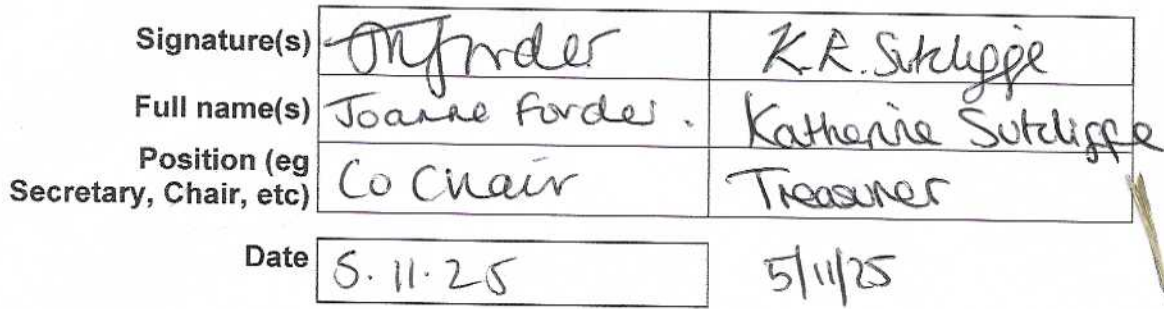 Signature(s) K.R. Sutcliffe
Full name(s) Joanne Forder. Katherine Sutcliffe
Position (eg
Secretary, Chair, etc) Co Chair Treasurer
Date 5.11.25 5/11/25